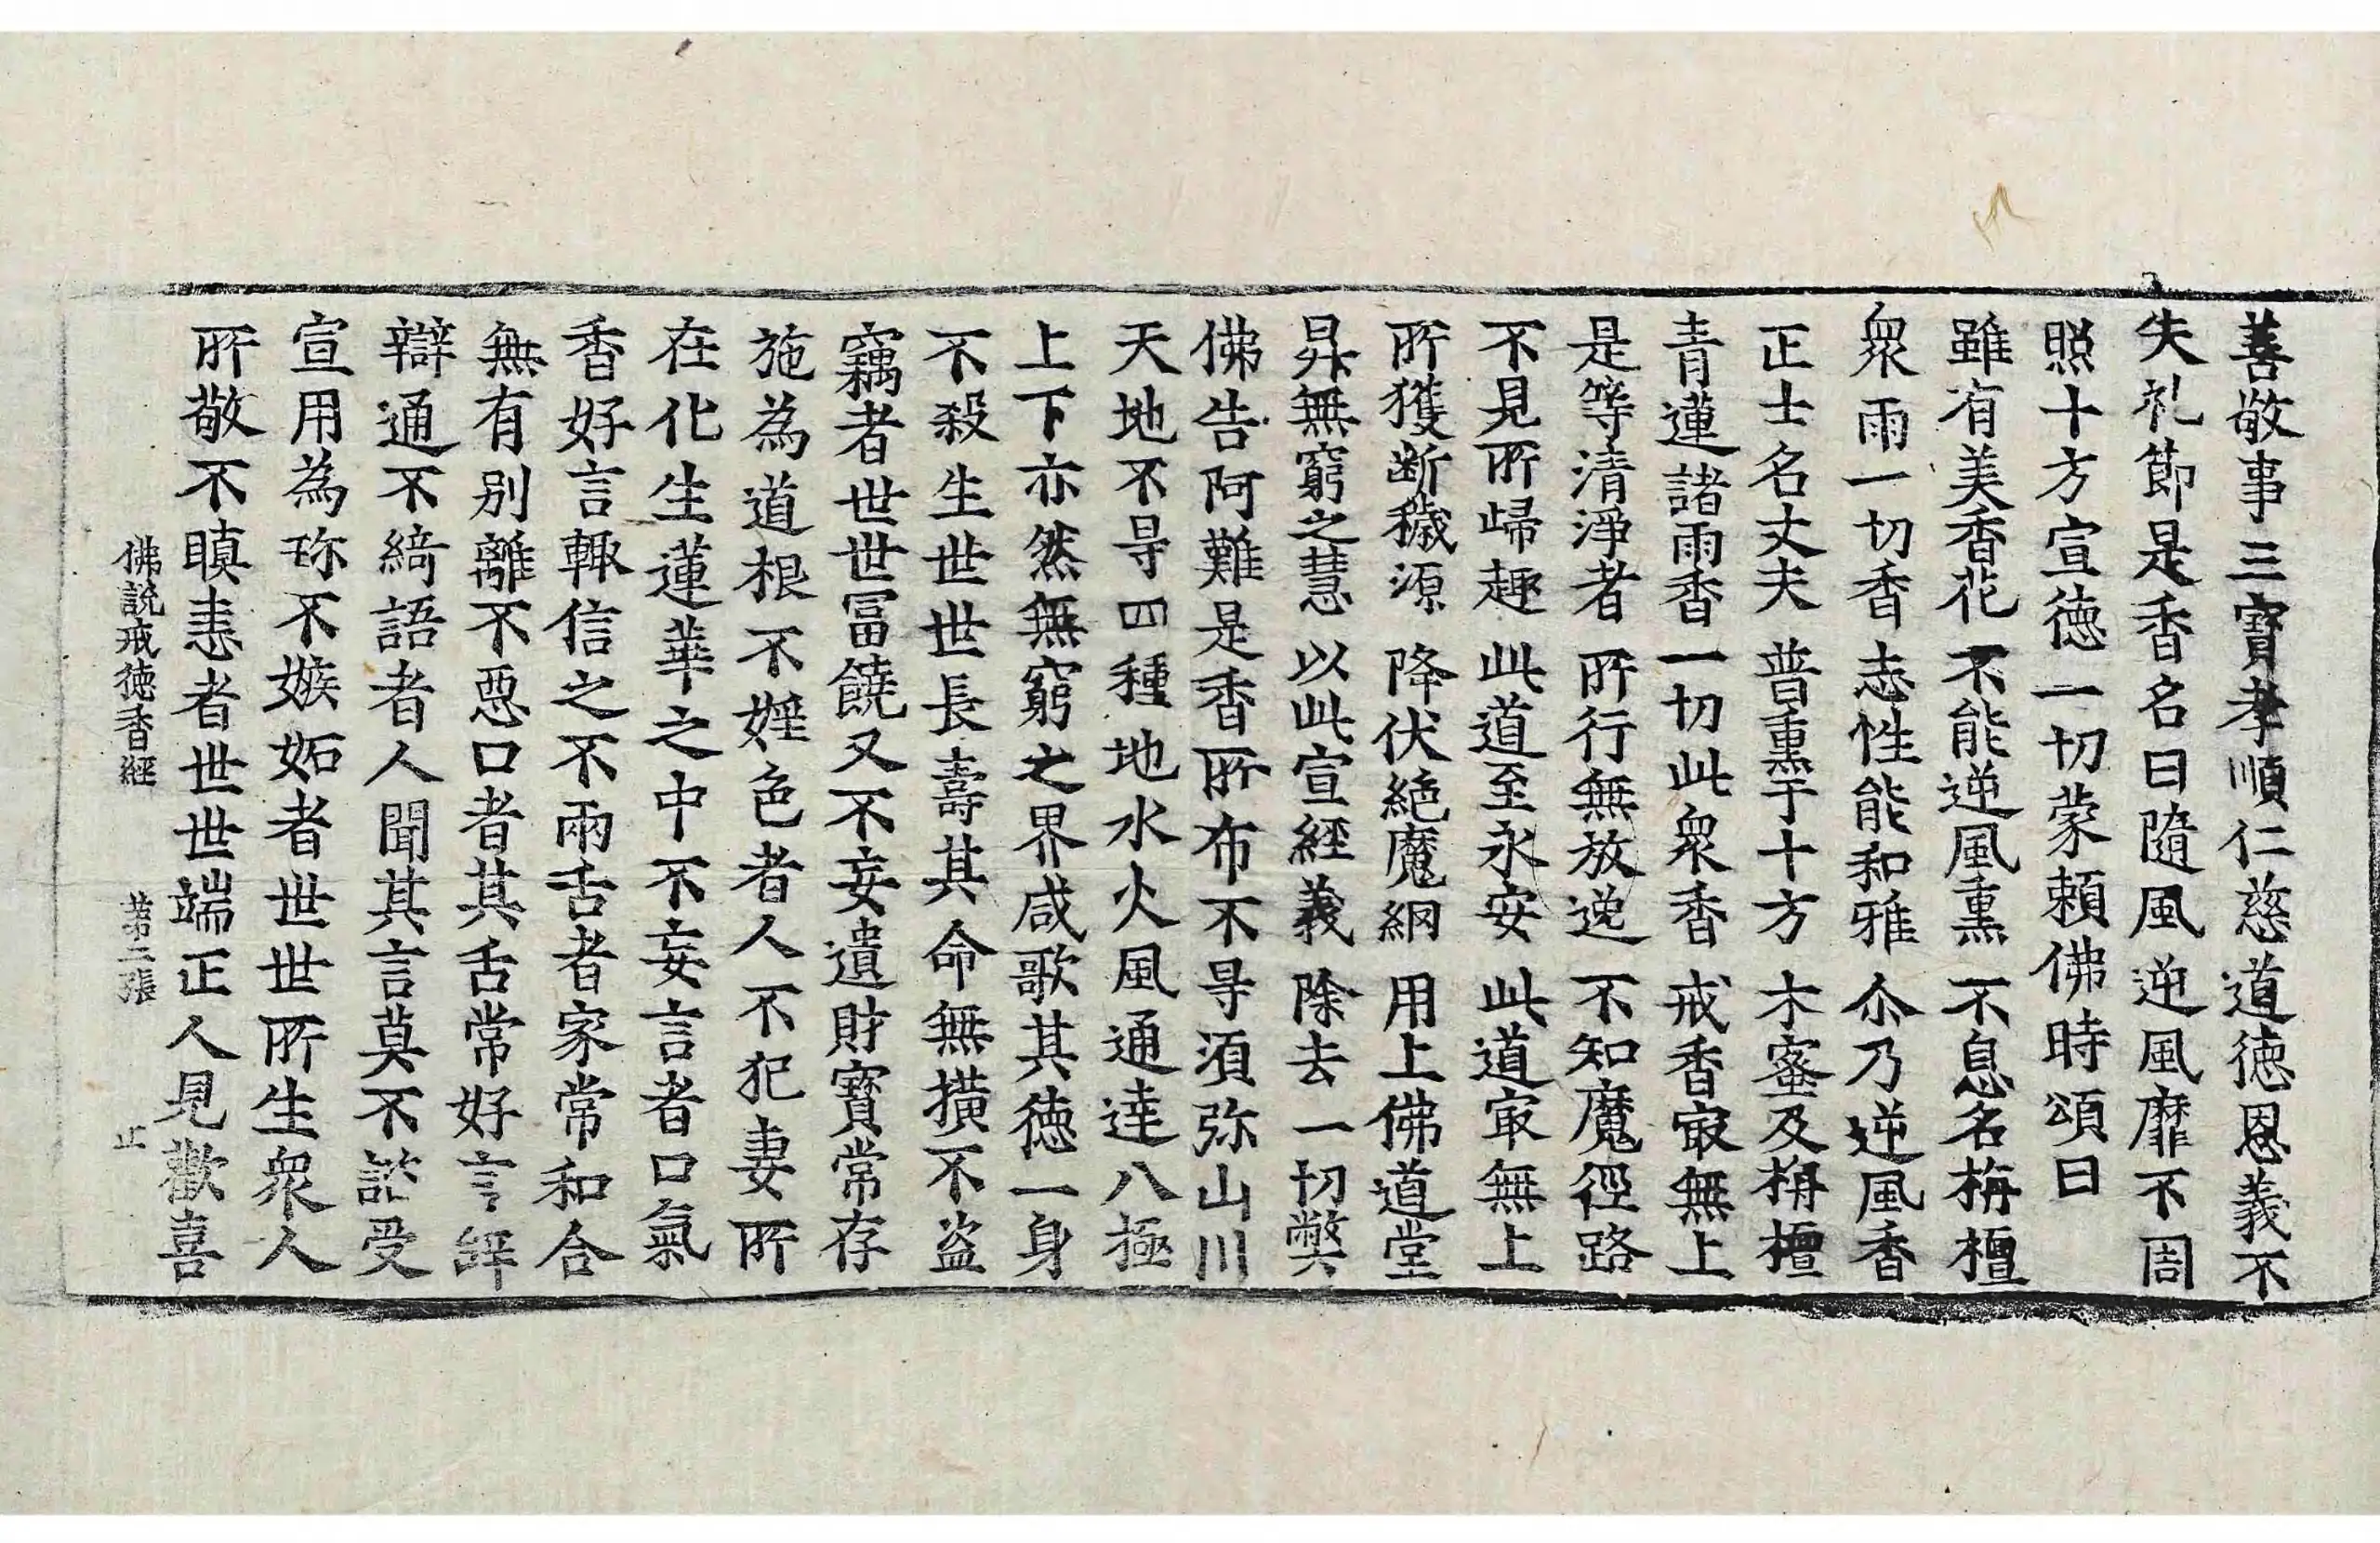 善敬事三寶孝順仁慈道徳恩義不
失礼節是香名曰隨風逆風靡不周
照十方宣徳一切蒙頼佛時頌曰
雖有美香花 不能逆風熏 不息名栴檀
衆雨一切香 志性能和雅 尒乃逆風香
正士名丈夫 普熏于十方 木蜜及栴檀
青蓮諸雨香 一切此衆香 戒香㝡無上
是等清淨者 所行無放逸 不知魔徑路
不見所歸趣 此道至永安 此道㝡無上
所獲断穢源 降伏絶魔網 用上佛道堂
昇無窮之慧 以此宣經義 除去一切弊
佛告阿難是香所布不㝵須弥山川
天地不㝵四種地水火風通達八極
上下亦然無窮之界咸歌其徳一身
不殺生世世長壽其命無横不盗
竊者世世冨饒又不妄遺財寶常存
施為道根不婬色者人不犯妻所
在化生蓮華之中不妄言者口氣
香好言輙信之不兩舌者家常和合
無有別離不惡口者其舌常好言辝
辯通不綺語者人聞其言莫不諮受
宣用為珎不嫉妬者世世所生衆人
所敬不瞋恚者世世端正人見歡喜
佛説戒徳香經 苐二張 止